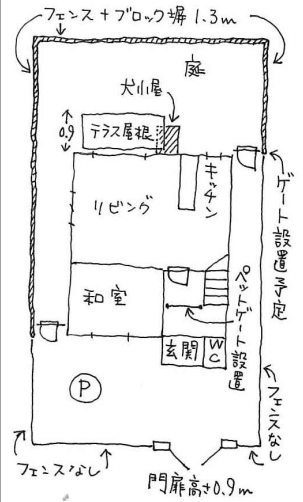 フェンス+ブロック塀1.3m
庭
犬小屋
0.9
テラス屋根
キッチン
リビング
ゲート設置予定
和室
ペットゲート設置
玄関
WC
P
フェンスなし
フェンスなし
門扉高さ0.9m